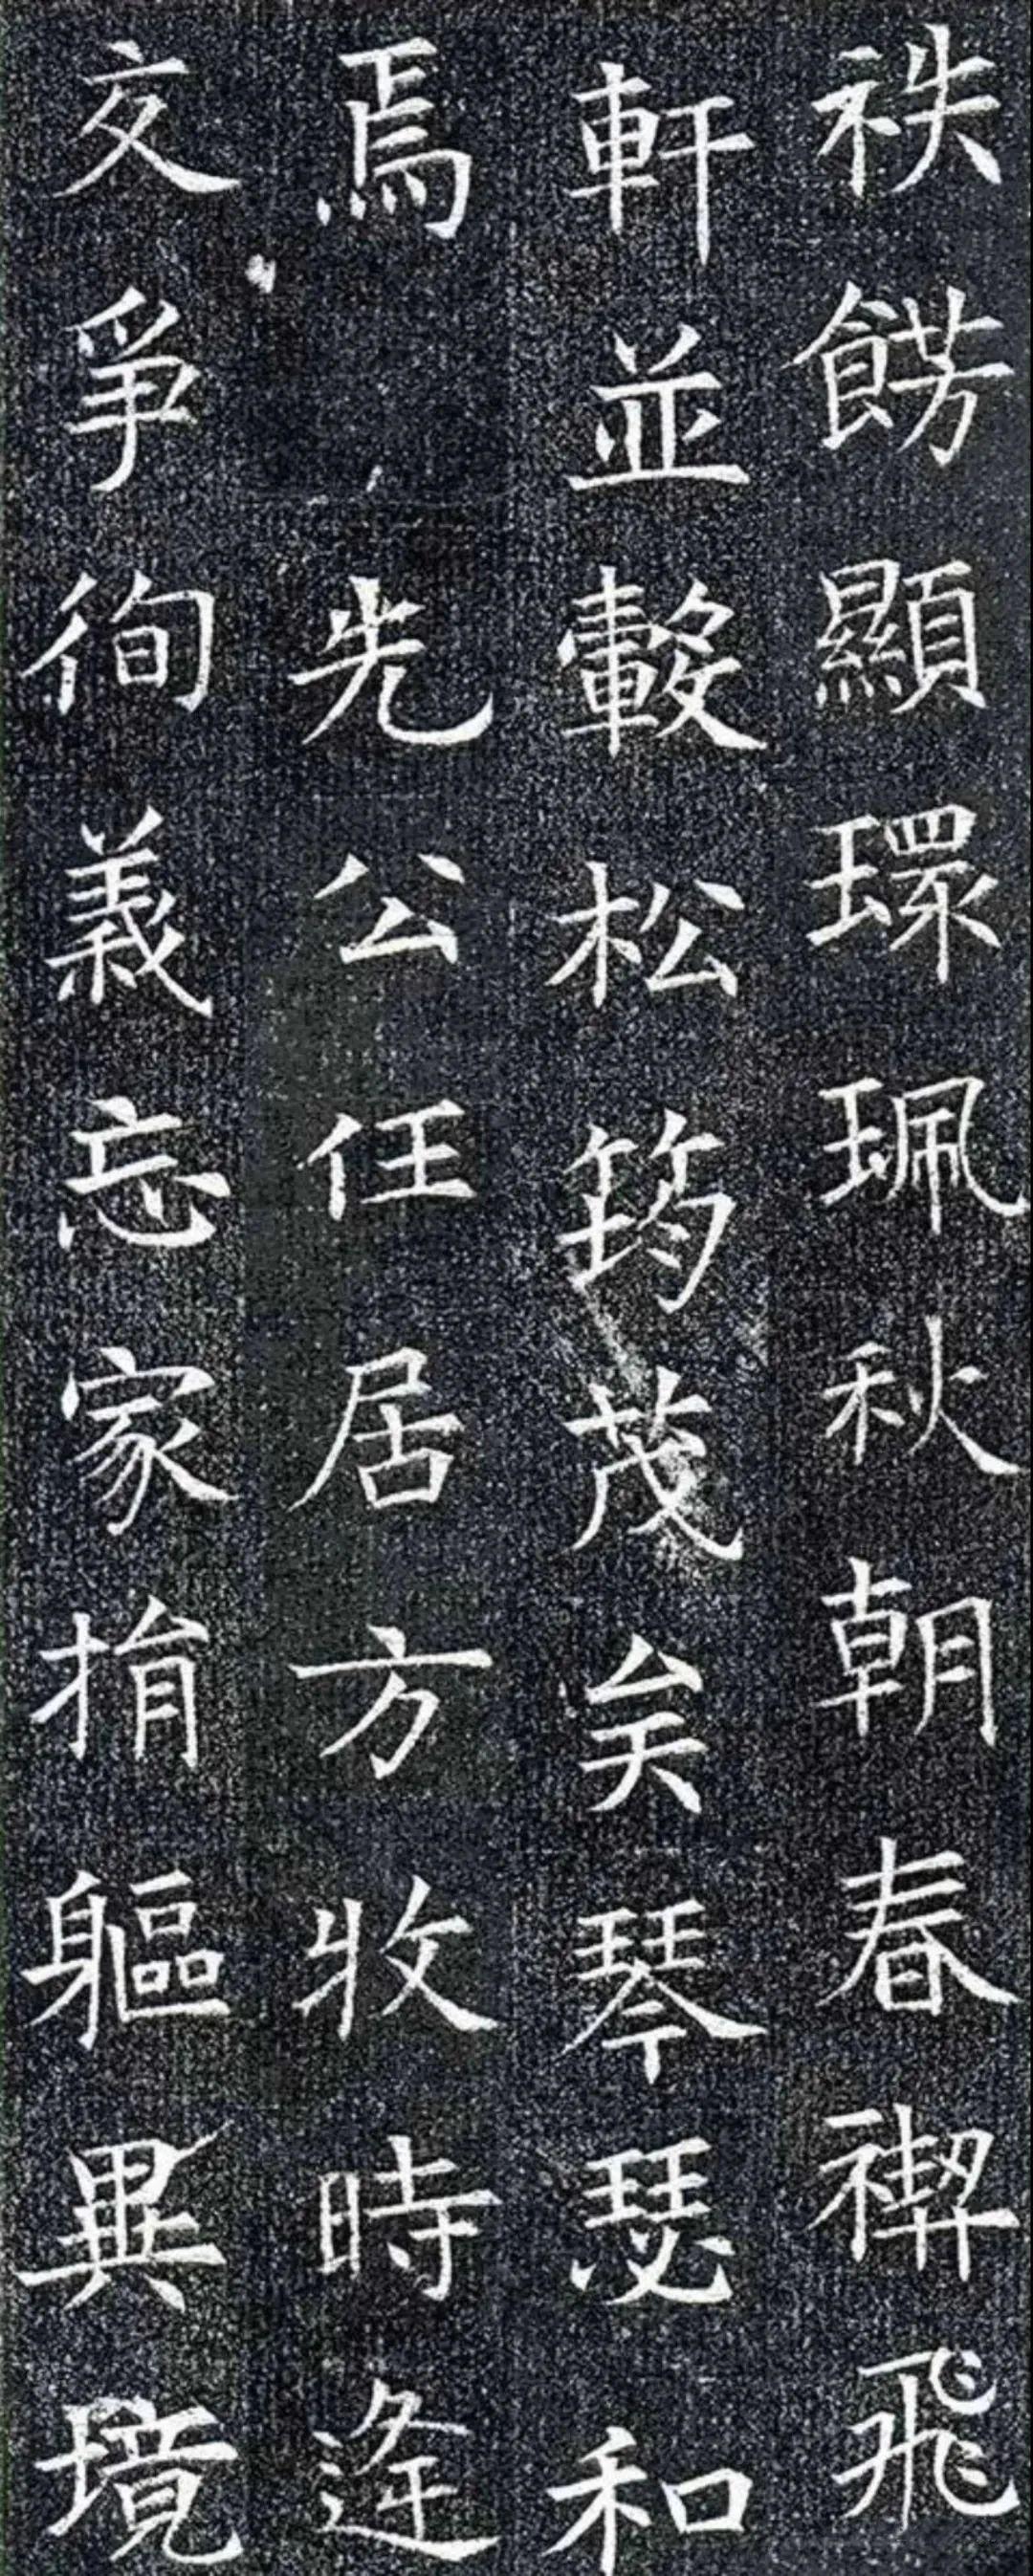 袟餝顯環珮秋朝春禊飛
軒並轂松筠茂矣琴瑟和
焉先公任居方牧時逢
交爭徇義忘家捐軀異境